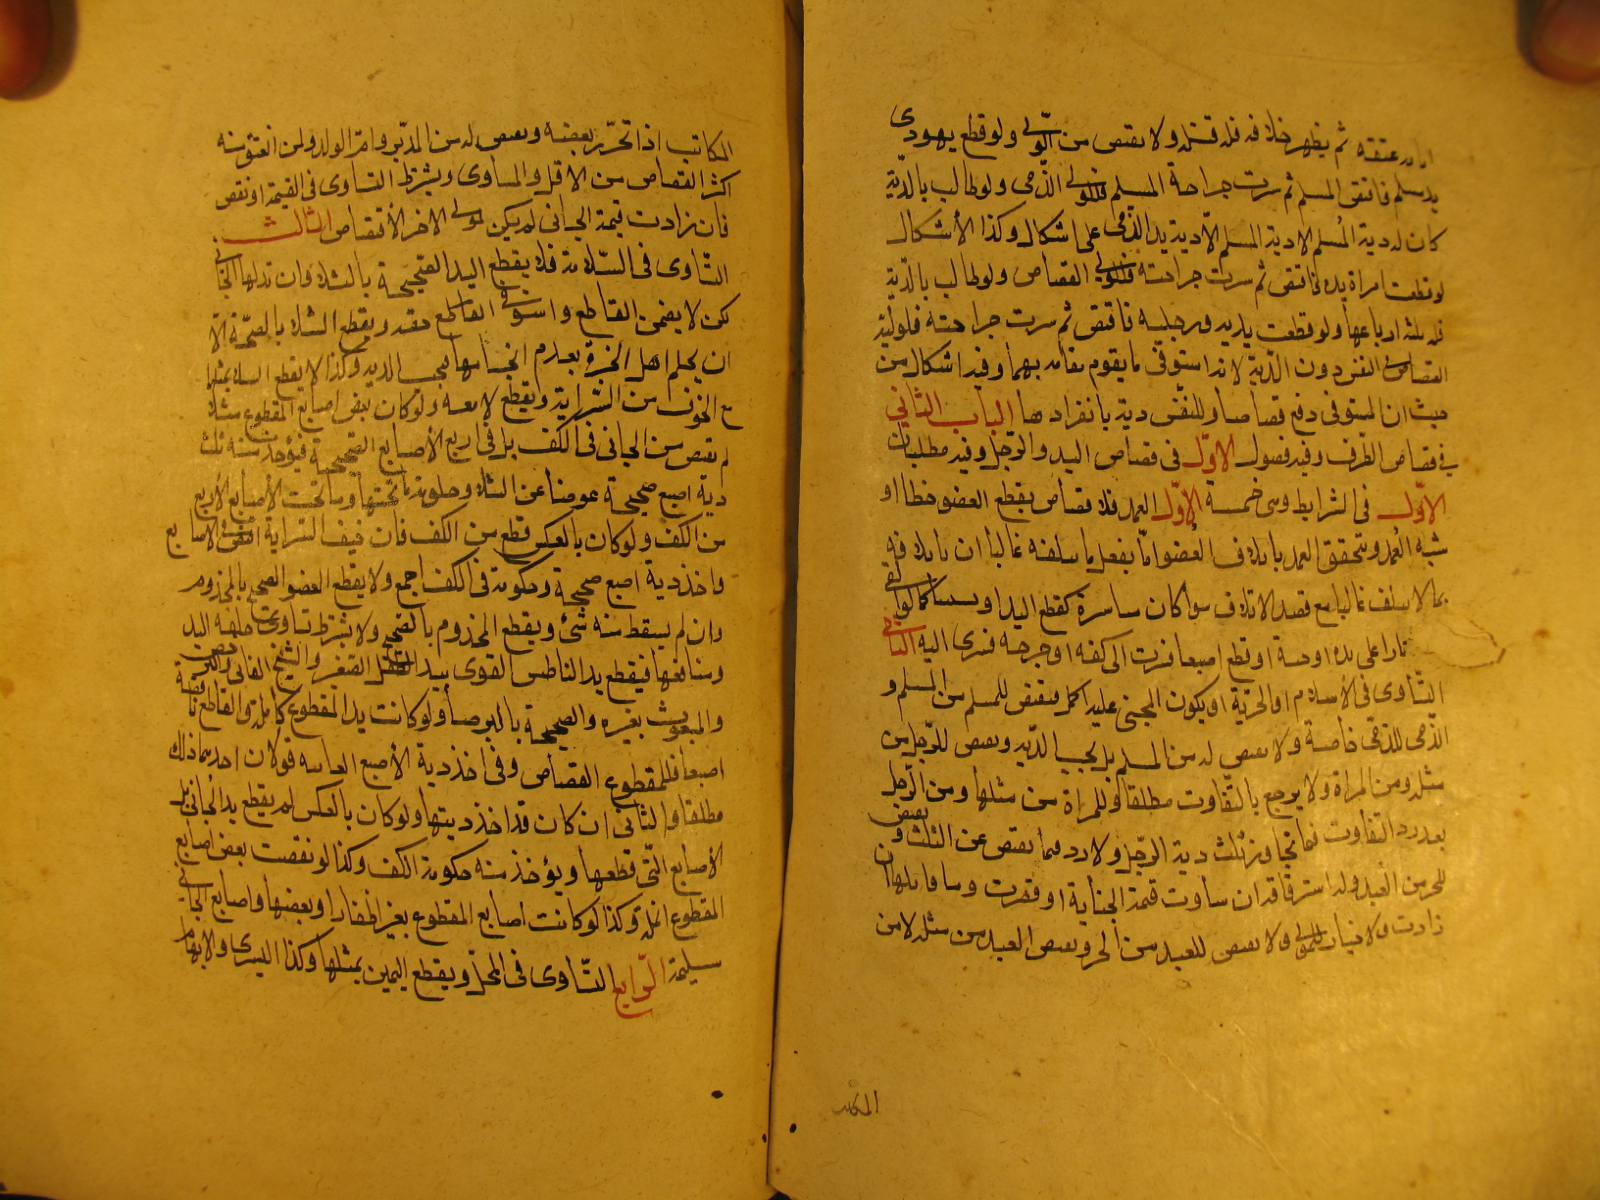 ثم يظهر خلافه فله قتله ولا يقتص من الولي ولو قطع يهودي
يد مسلم فاقتص المسلم ثم سرت جراحة المسلم فللولي الذمي ولو طالب بالدية
كان له دية المسلم الا دية يد الذمي على اشكال وكذا الأشكال
لو قطعت امراة يده فاقتص ثم سرت جراحته فللولي القصاص ولو طالب بالدية
فله ثلثة ارباعها ولو قطعت يديه ورجليه فاقتص ثم سرت جراحته فلوليه
القصاص في النفس دون الدية لانه استوفى ما يقوم مقامه بهما وفيه اشكال من
حيث ان المستوفى دفع قصاصا وللنفس دية بانفرادها الباب الثاني
في قصاص الطرف وفيه فصول الاول في قصاص اليد والرجل وفيه مطلبان
الاول في الشرايط وهي خمسة الاول العمد فلا قصاص بقطع العضو خطا او
شبه العمد ويتحقق العمد باتلاف العضو اما بفعل ما يتلفه غالبا او باتلافه
بما لا يتلف غالبا مع قصد الاتلاف سواء كان مباشرة كقطع اليد او تسبيبا كما لو القى
نارا على يده او حية او قطع اصبعا فسرت الى كفه او جرحه فسرى اليه الثاني
التساوي في الأسلام او الحرية او يكون المجني عليه اكمل فيقتص للمسلم من المسلم و
الذمي للذمي خاصة ولا يقتص له من المسلم بل يجب الدية ويقتص للرجل من
مثله ومن المراة ولا يرجع بالتفاوت مطلقا وللمراة من مثلها ومن الرجل
بعد رد التفاوت فيما تجاوز ثلث دية الرجل ولا رد فيما نقص عن الثلث و يقتص
للحر من العبد وله استرقاقه ان ساوت قيمته الجناية او قصرت وما قابلها ان
زادت ولا خيار للمولى ولا يقتص للعبد من الحر ويقتص العبد من مثله لا من
المكاتب
المكاتب اذا تحرر بعضه ويقتص له من المدبر وام الولد ولمن انعتق منه
اكثر القصاص من الاقل والمساوي ويشترط التساوي في القيمة او نقص
فان زادت قيمة الجاني لم يكن لمولى الاخر الاقتصاص الثالث
التساوي في السلامة فلا يقطع اليد الصحيحة بالشلاء وان بذلها الجاني
لكن لا يضمن القاطع واستوفى القاطع حقه ويقطع الشلاء بالصحيحة الا
ان يحكم اهل الخبرة بعدم انحسامها فيجب الدية وكذا لا يقطع الشلاء بمثلها
مع الخوف من السراية ويقطع لا معه ولو كان بعض اصابع المقطوع شلاء
لم يقتص من الجاني في الكف بل في اربع الأصابع الصحيحة فيؤخذ منه ثلث
دية اصبع صحيحة عوضا عن الشلاء وحكومة ما تحتها وما تحت الأصابع الأربع
من الكف ولو كان بالعكس قطع من الكف فان خيف السراية اقتص في الاصابع
واخذ دية اصبع صحيحة وحكومة في الكف اجمع ولا يقطع العضو الصحيح بالمجذوم
وان لم يسقط منه شئ ويقطع المجذوم بالصحيح ولا يشترط تساوي خلقة اليد
ومنافعها فيقطع يد الباطش القوي بيد الطفل الصغير والشيخ الفاني والمريض
بغيره والصحيحة بالبرصاء ولو كانت يد المقطوع كاملة والقاطع ناقصة
اصبعا فللمقطوع القصاص وفي اخذ دية الأصبع الفائتة قولان احدهما ذلك
مطلقا والثاني ان كان قد اخذ ديتها ولو كان بالعكس لم يقطع يد الجاني بل
الأصابع التي قطعها ويؤخذ منه حكومة الكف وكذا لو نقصت بعض اصابع
المقطوع انملة وكذا لو كانت اصابع المقطوع بغير اظفار او بعضها واصابع الجاني
سليمة الرابع التساوي في المحل ويقطع اليمين بمثلها وكذا اليسرى والابهام